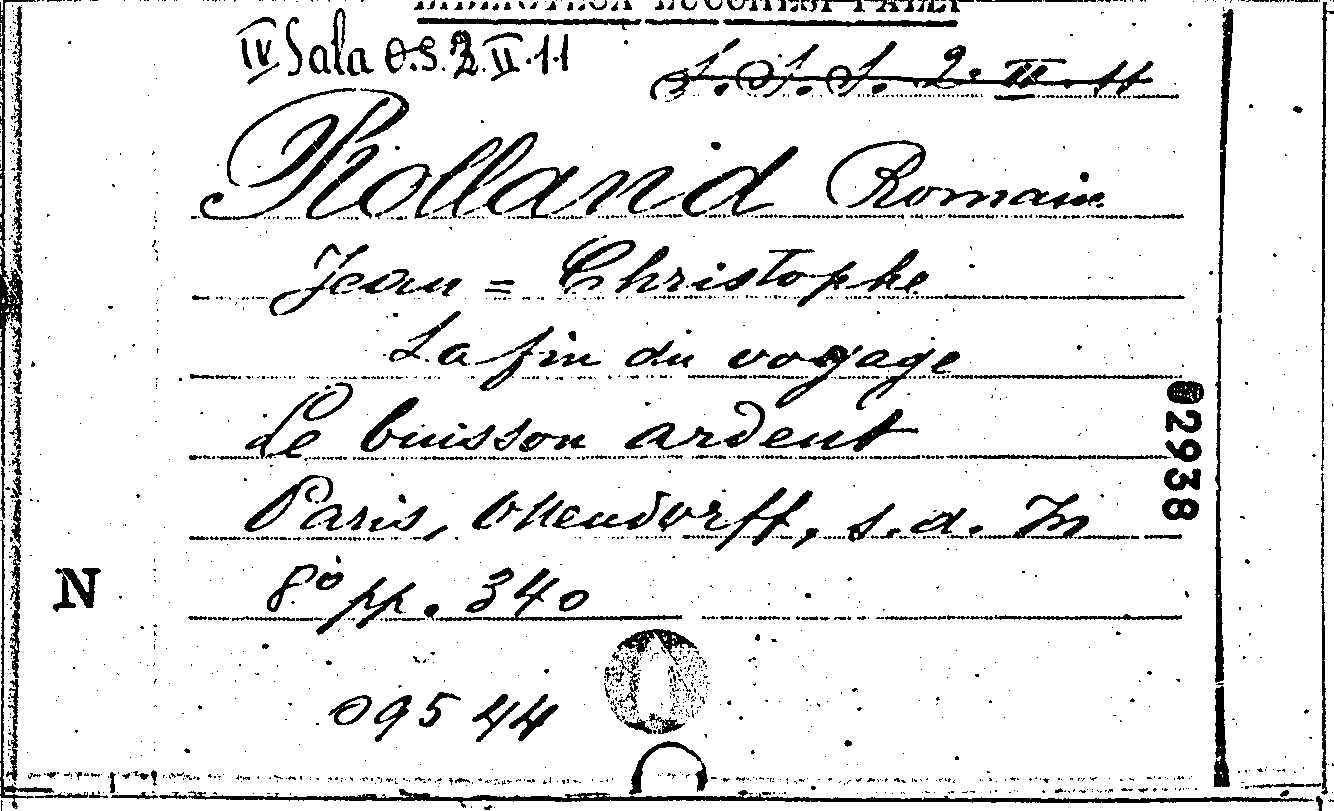 BIBLIOTECA LUCCHESI PALLI
IV Sala O.S. 2 II.11
S.S.S. 2. II. 11
Rolland Romain
Jean = Christophe
La fin du voyage
Le buisson ardent
Paris, Ollendorff, s.d. In
8° pp. 340
N
02938
09544